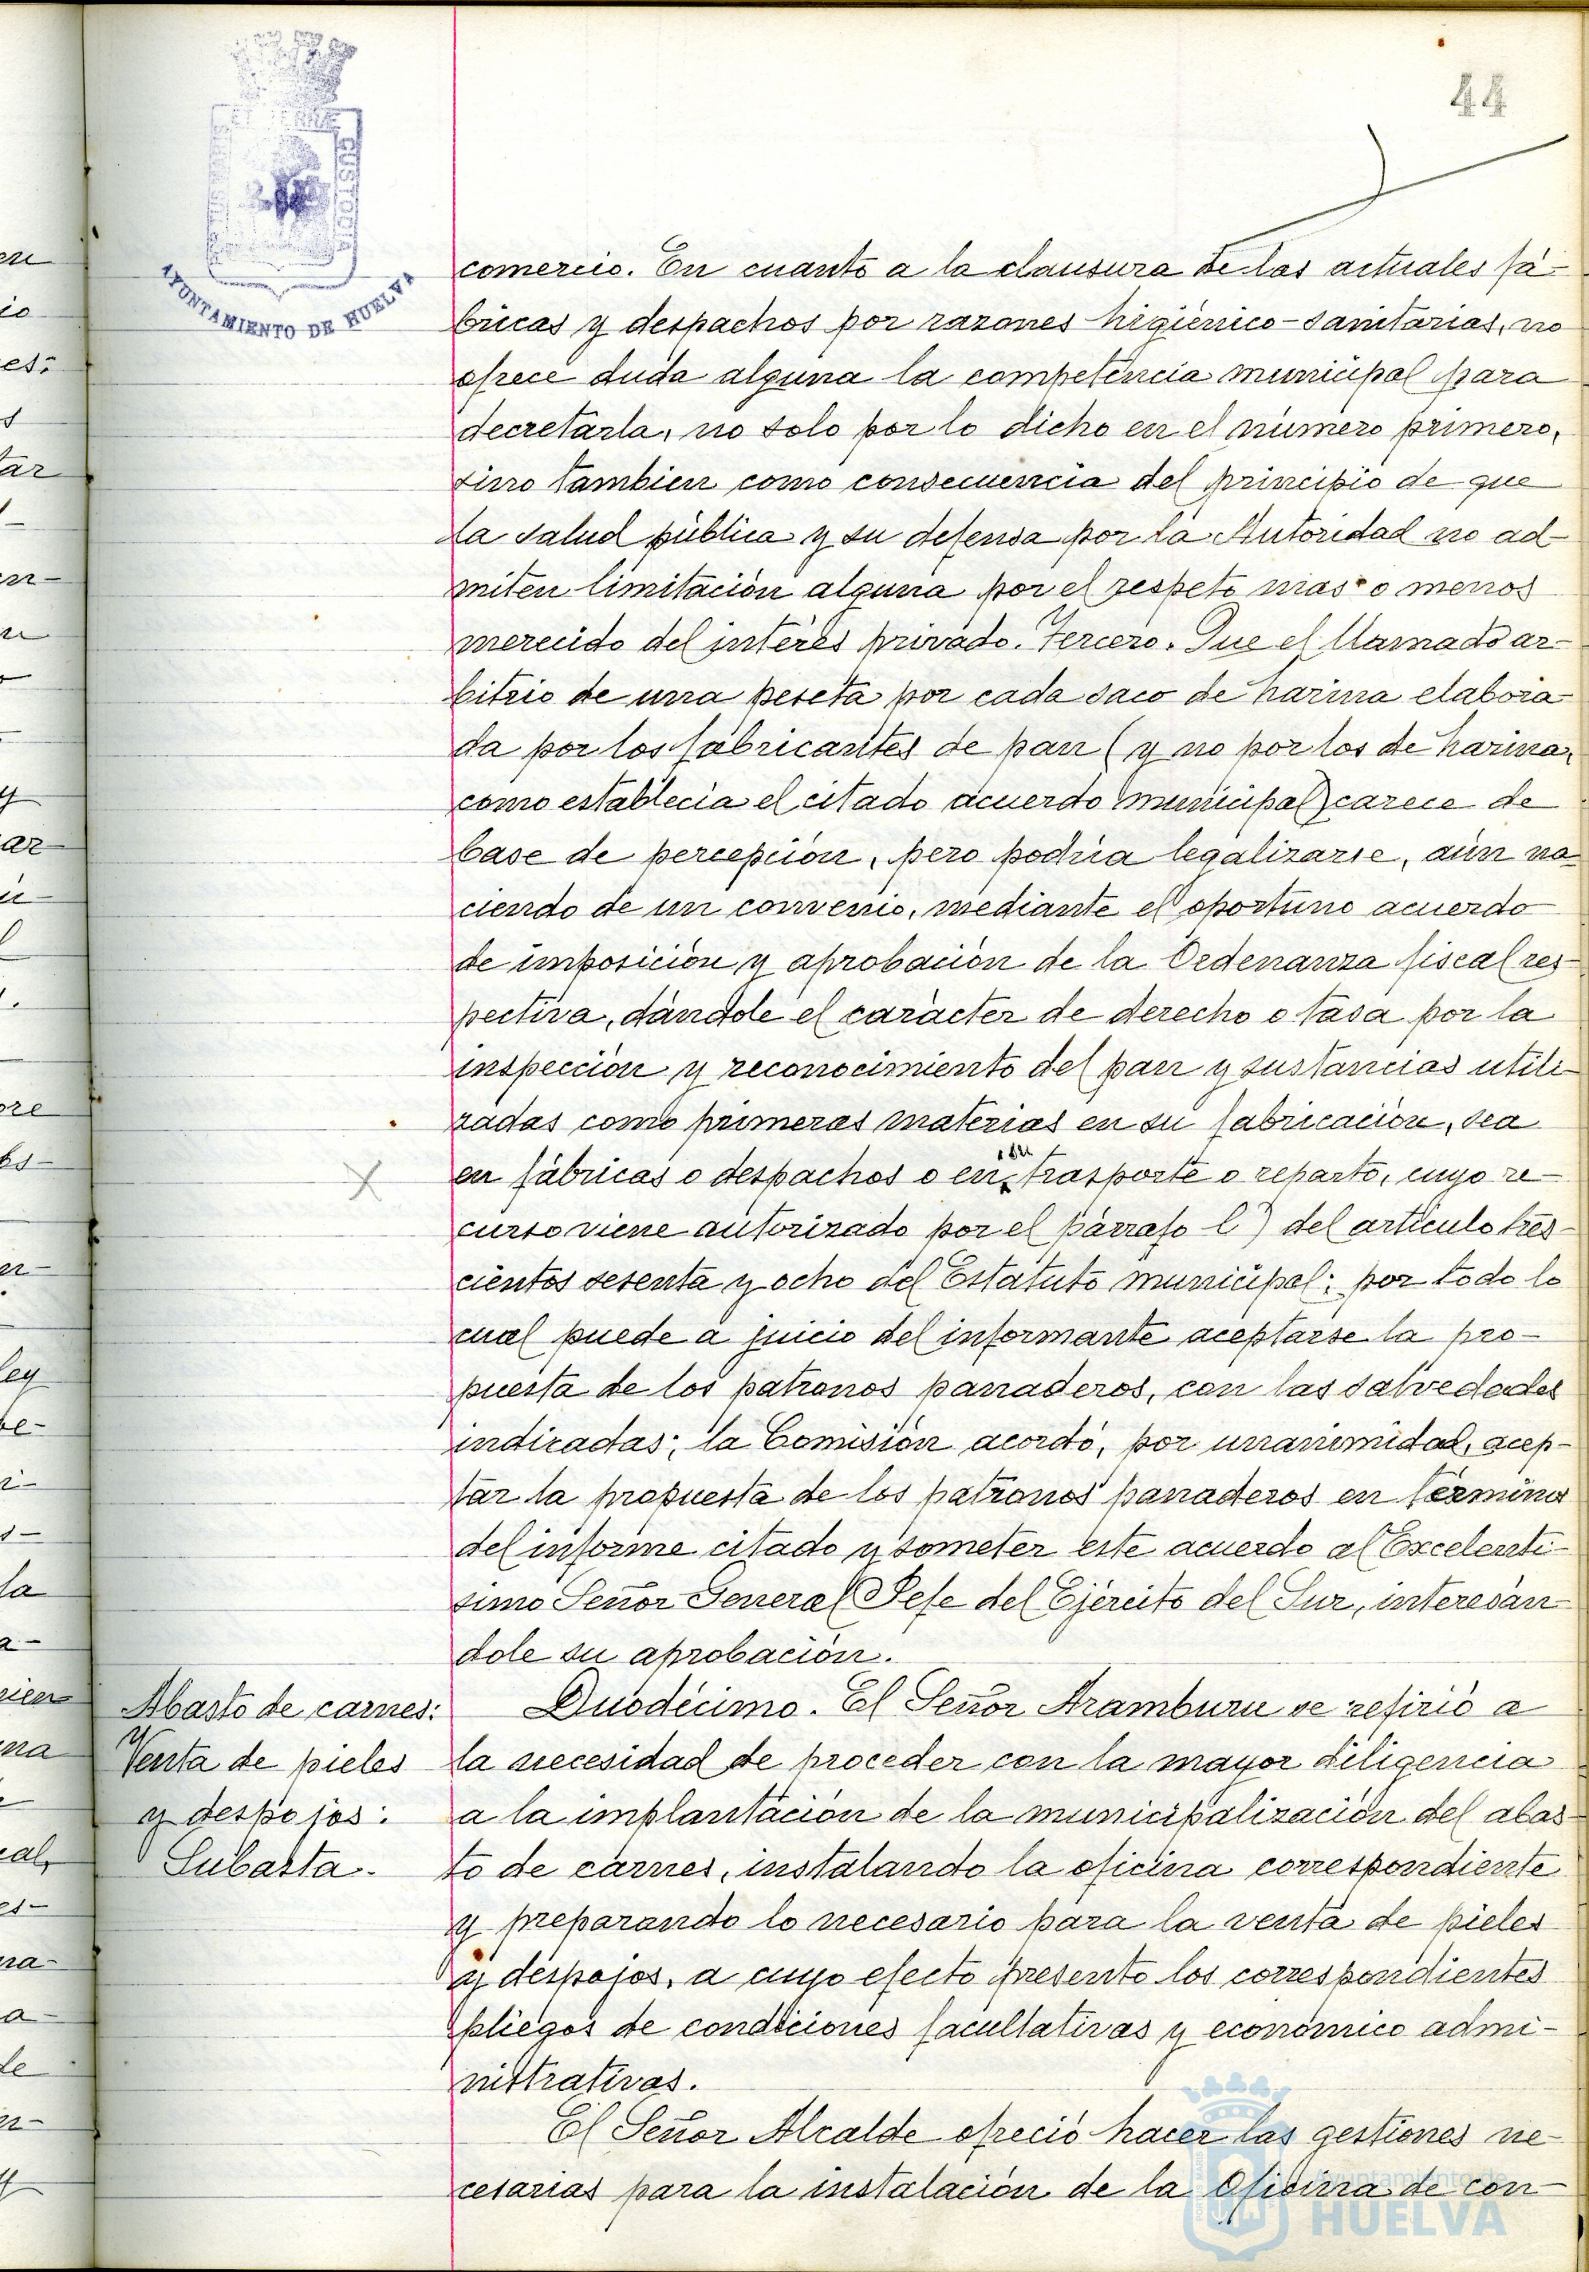 44
AYUNTAMIENTO DE HUELVA
comercio. En cuanto a la clausura de las actuales fá-
bricas y despachos por razones higiénico-sanitarias, no
ofrece duda alguna la competencia municipal para
decretarla, no solo por lo dicho en el número primero,
sino tambien como consecuencia del principio de que
la salud pública y su defensa por la Autoridad no ad-
miten limitación alguna por el respeto mas o menos
merecido del interés privado. Tercero. Que el llamado ar-
bitrio de una peseta por cada saco de harina elabora-
da por los fabricantes de pan (y no por los de harina,
como establecia el citado acuerdo municipal) carece de
base de percepción, pero podria legalizarse, aún na-
ciendo de un convenio, mediante el oportuno acuerdo
de imposición y aprobación de la Ordenanza fiscal res-
pectiva, dándole el carácter de derecho o tasa por la
inspección y reconocimiento del pan y sustancias utili-
zadas como primeras materias en su fabricación, sea
en fábricas o despachos o en su trasporte o reparto, cuyo re-
curso viene autorizado por el párrafo l) del artículo tres-
cientos sesenta y ocho del Estatuto municipal; por todo lo
cual puede a juicio del informante aceptarse la pro-
puesta de los patronos panaderos, con las salvedades
indicadas; la Comisión acordó, por unanimidad, acep-
tar la propuesta de los patronos panaderos en términos
del informe citado y someter este acuerdo al Excelentí-
simo Señor General Jefe del Ejército del Sur, interesán-
dole su aprobación.
Abasto de carnes:
Venta de pieles
y despojos:
Subasta.
Duodécimo. El Señor Aramburu se refirió a
la necesidad de proceder con la mayor diligencia
a la implantación de la municipalización del abas-
to de carnes, instalando la oficina correspondiente
y preparando lo necesario para la venta de pieles
y despojos, a cuyo efecto presento los correspondientes
pliegos de condiciones facultativas y económico admi-
nistrativas.
El Señor Alcalde ofreció hacer las gestiones ne-
cesarias para la instalación de la Oficina de con-
Ayuntamiento de
HUELVA